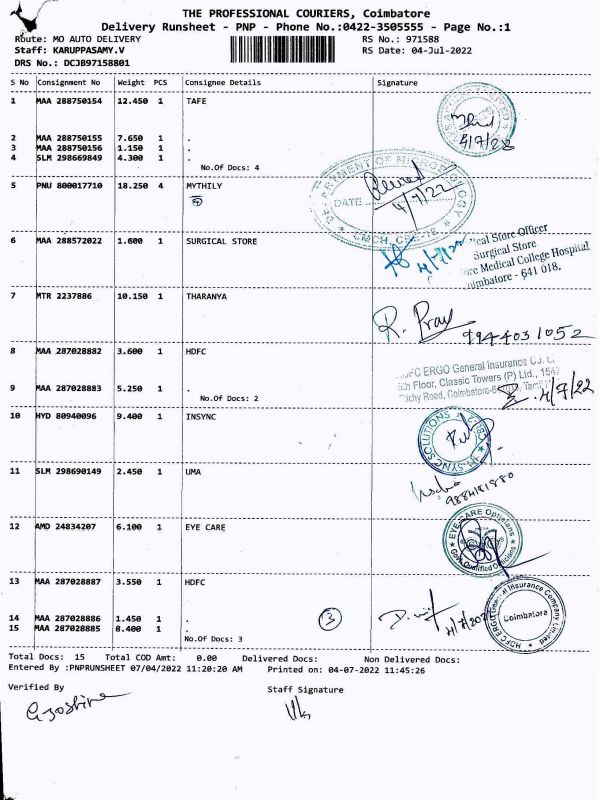 THE PROFESSIONAL COURIERS, Coimbatore
Delivery Runsheet - PNP - Phone No.:0422-3505555 - Page No.:1
Route: MO AUTO DELIVERY RS No.: 971588
Staff: KARUPPASAMY.V RS Date: 04-Jul-2022
DRS No.: DCJB97158801
S No Consignment No Weight PCS Consignee Details Signature
1 MAA 288750154 12.450 1 TAFE
4/7/22
2 MAA 288750155 7.650 1 .
3 MAA 288750156 1.150 1 .
4 SLM 298669849 4.300 1 .
No.Of Docs: 4
DEPARTMENT OF MICROBIOLOGY
5 PNU 800017710 18.250 4 MYTHILY
DATE
4/7/22
CMCH, CBE
6 MAA 288572022 1.600 1 SURGICAL STORE
Store Officer
Surgical Store
Medical College Hospital
- 641 018.
7 MTR 2237886 10.150 1 THARANYA
9944031052
8 MAA 287028882 3.600 1 HDFC
ERGO General Insurance Co.
Floor, Classic Towers (P) Ltd.,
9 MAA 287028883 5.250 1 .
Road, Coimbatore
4/7/22
No.Of Docs: 2
10 HYD 80940096 9.400 1 INSYNC
IN-SYNC SOLUTIONS
11 SLM 298690149 2.450 1 UMA
12 AMD 24834207 6.100 1 EYE CARE
EYE CARE Opticians
Govt. Qualified Opticians
13 MAA 287028887 3.550 1 HDFC
HDFC ERGO General Insurance Company Limited
Coimbatore
14 MAA 287028886 1.450 1 .
3
15 MAA 287028885 8.400 1 .
No.Of Docs: 3
Total Docs: 15 Total COD Amt: 0.00 Delivered Docs: Non Delivered Docs:
Entered By :PNPRUNSHEET 07/04/2022 11:20:20 AM Printed on: 04-07-2022 11:45:26
Verified By Staff Signature